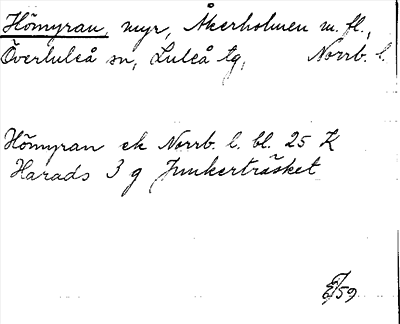 Hömyran, myr, Åkerholmen m. fl.,
Överluleå sn, Luleå tg, Norrb. l.
Hömyran ek Norrb. l. bl. 25 K
Harads 3 g Junkerträsket
/59